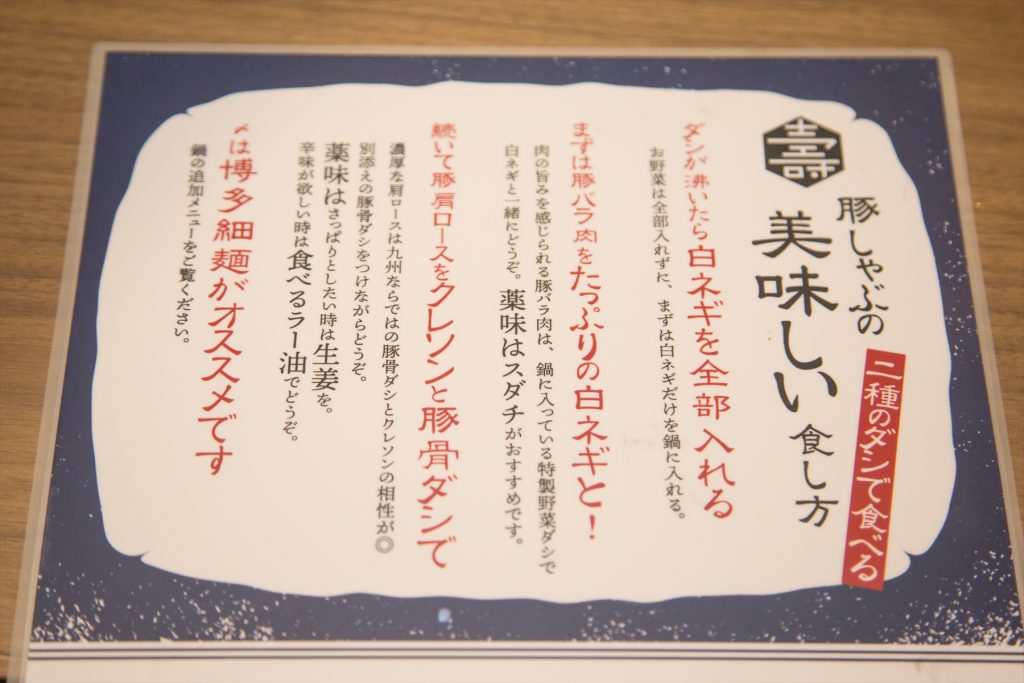 壽
豚しゃぶの
美味しい食し方
二種のダシで食べる
ダシが沸いたら白ネギを全部入れる
お野菜は全部入れずに、まずは白ネギだけを鍋に入れる。
まずは豚バラ肉をたっぷりの白ネギと！
肉の旨みを感じられる豚バラ肉は、鍋に入っている特製野菜ダシで
白ネギと一緒にどうぞ。薬味はスダチがおすすめです。
続いて豚肩ロースをクレソンと豚骨ダシで
濃厚な肩ロースは九州ならではの豚骨ダシとクレソンの相性が◎
別添えの豚骨ダシをつけながらどうぞ。
薬味はさっぱりとしたい時は生姜を。
辛味が欲しい時は食べるラー油でどうぞ。
〆は博多細麺がオススメです
鍋の追加メニューをご覧ください。